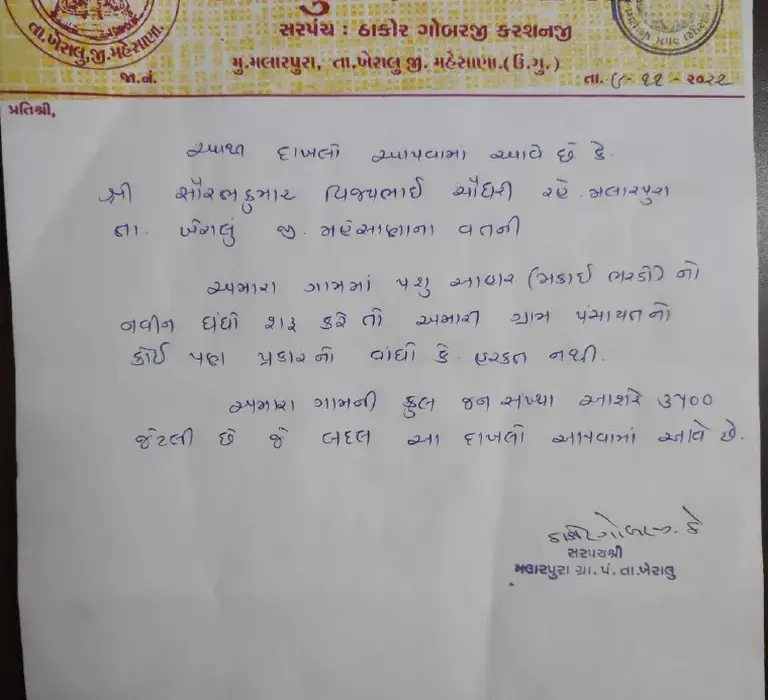 સરપંચ : ઠાકોર ગોબરજી કરશનજી
મુ.મલારપુરા, તા.ખેરાલુ જી. મહેસાણા.(ઉ.ગુ.)
તા.ખેરાલુ,જી.મહેસાણા.
જા.નં.
તા. ૯-૧૧-૨૦૨૨
પ્રતિશ્રી,
આથી દાખલો આપવામા આવે છે કે.
શ્રી સૌરભકુમાર વિજયભાઈ ચૌધરી રહે. મલારપુરા
તા. ખેરાલું જી. મહેસાણાના વતની
અમારા ગામમાં પશુ આહાર (મકાઈ ભરડો) નો
નવીન ધંધો શરૂ કરે તો અમારી ગ્રામ પંચાયતનો
કોઈ પણ પ્રકારનો વાંધો કે હરકત નથી.
અમારા ગામની કુલ જન સંખ્યા આશરે ૩૫૦૦
જેટલી છે જે બદલ આ દાખલો આપવામાં આવે છે.
ઠાકોર ગોબરજી. કે
સરપચશ્રી
મલારપુરા ગ્રા.પં.તા.ખેરાલુ